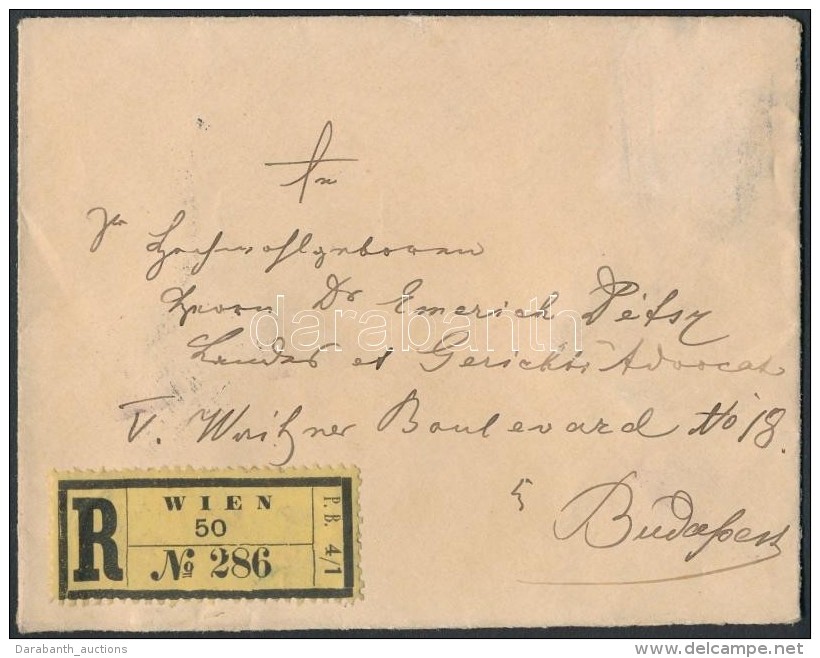 An
Hochwohlgeboren
Herrn Dr Emerich Péfsy
Landes et Gerichts Advocat
V. Waitzner Boulevard No 18.
Budapest
R
WIEN
50
No 286
P.B. 4/1
darabanth
Darabanth_auctions
www.delcampe.net